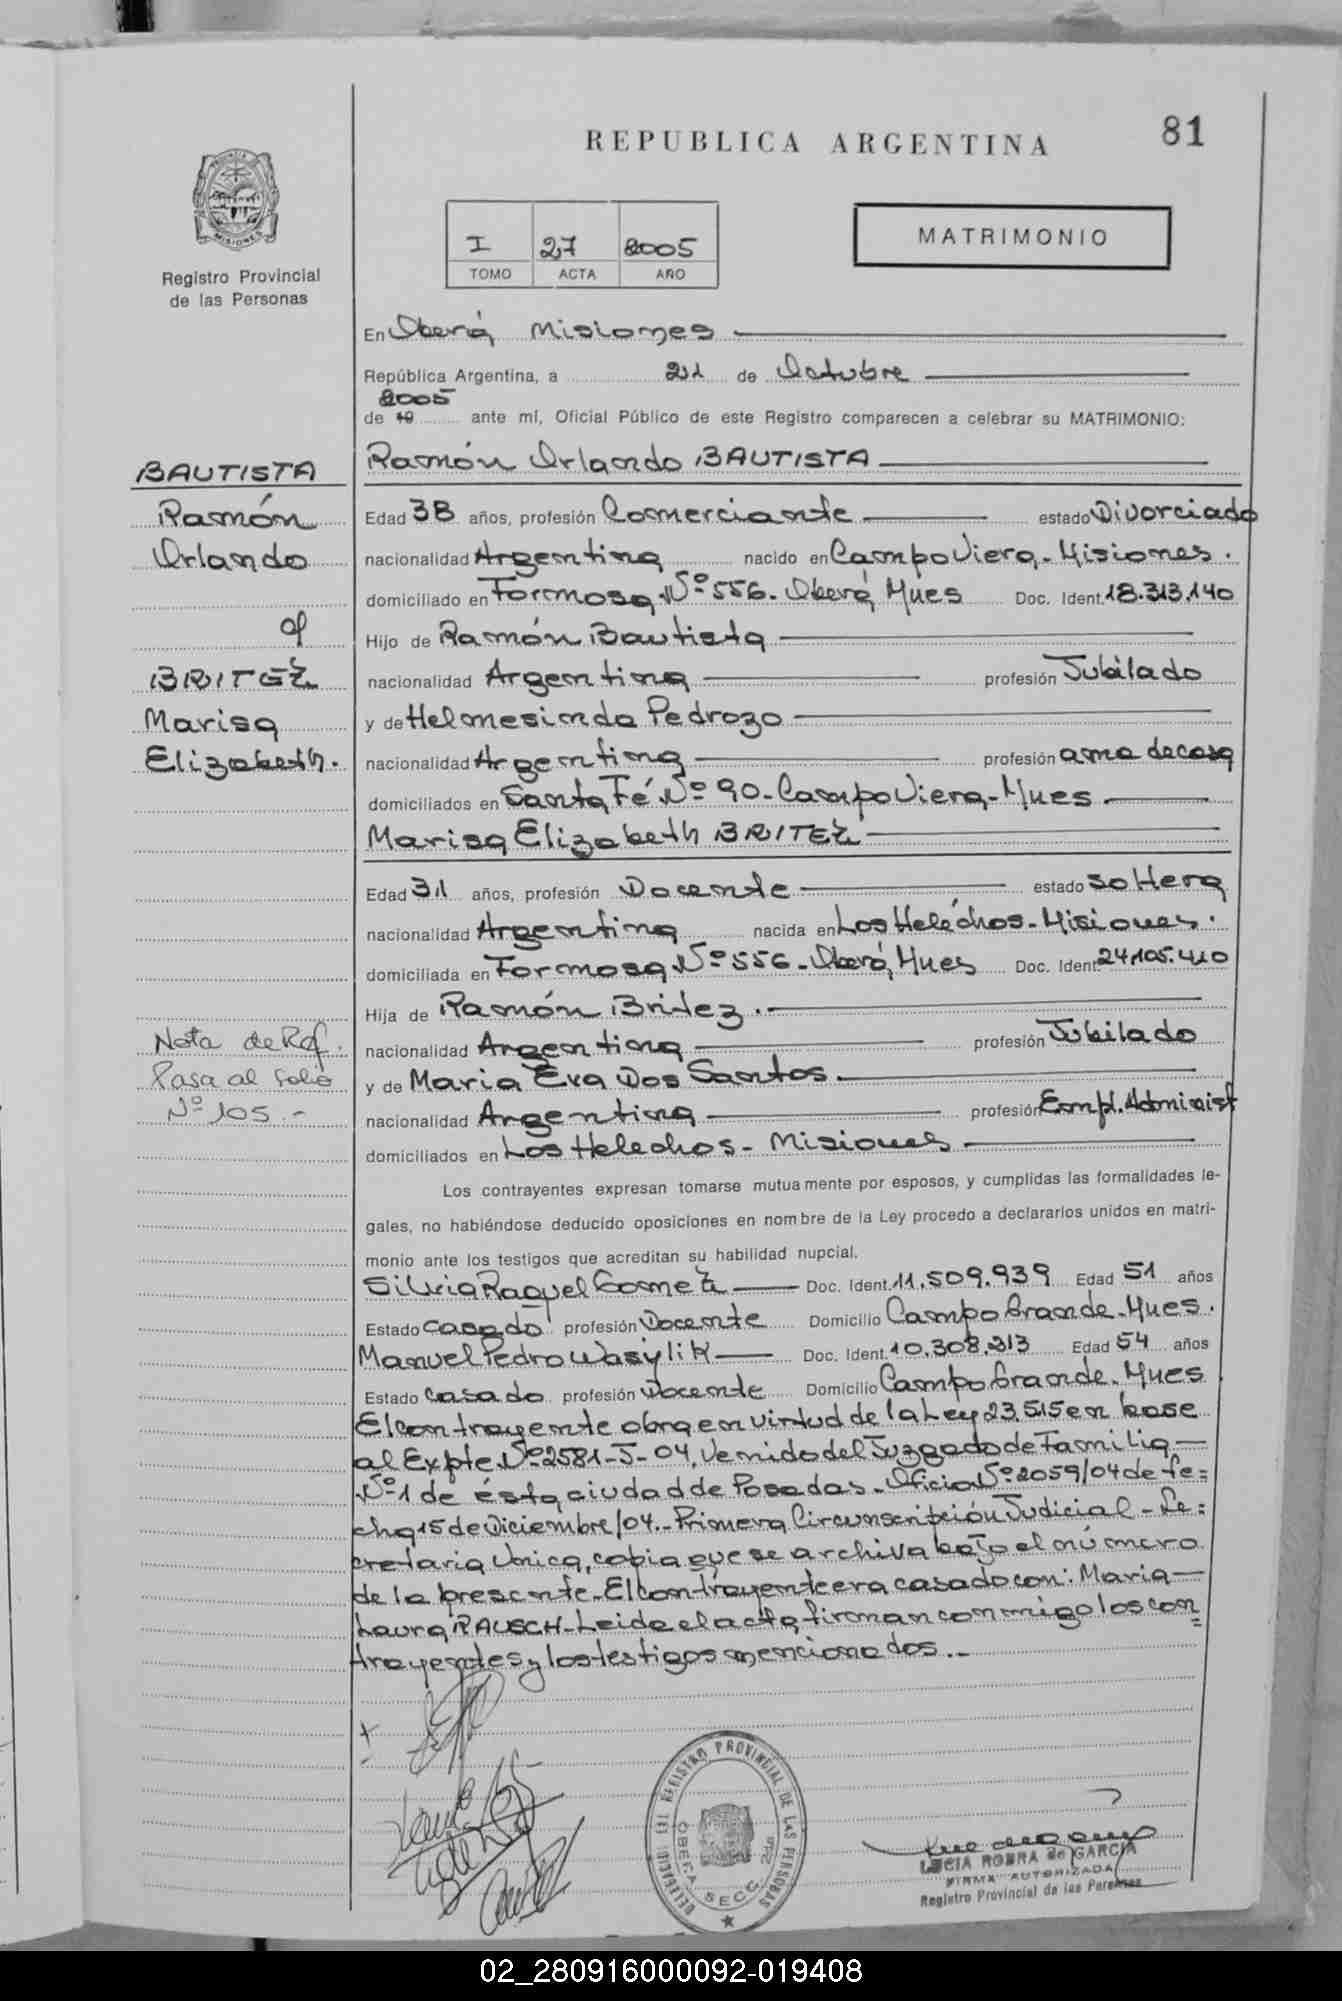 REPUBLICA ARGENTINA
81
PROVINCIA DE MISIONES
Registro Provincial
de las Personas
I 27 2005
TOMO ACTA AÑO
MATRIMONIO
En Oberá, Misiones
República Argentina, a 21 de Octubre
2005
de 19 ante mí, Oficial Público de este Registro comparecen a celebrar su MATRIMONIO:
Ramón Orlando BAUTISTA
Edad 38 años, profesión Comerciante estado Divorciado
nacionalidad Argentina nacido en Campo Viera - Misiones.
domiciliado en Formosa Nº 556. Oberá Mnes Doc. Ident. 18.313.140
Hijo de Ramón Bautista
nacionalidad Argentina profesión Jubilado
y de Helmesinda Pedrozo
nacionalidad Argentina profesión ama de casa
domiciliados en Santa Fé Nº 90 - Campo Viera - Mnes
Marisa Elizabeth BRITEZ
Edad 31 años, profesión Docente estado Soltera
nacionalidad Argentina nacida en Los Heléchos - Misiones.
domiciliada en Formosa Nº 556 - Oberá, Mnes Doc. Ident. 24.105.410
Hija de Ramón Britez.
nacionalidad Argentina profesión Jubilado
y de Maria Eva Dos Santos
nacionalidad Argentina profesión Empl. Administ
domiciliados en Los Helechos - Misiones
Los contrayentes expresan tomarse mutuamente por esposos, y cumplidas las formalidades le-
gales, no habiéndose deducido oposiciones en nombre de la Ley procedo a declararlos unidos en matri-
monio ante los testigos que acreditan su habilidad nupcial.
Silvia Raquel Gomez Doc. Ident. 11.509.939 Edad 51 años
Estado casado profesión Docente Domicilio Campo Grande - Mnes.
Manuel Pedro Wasylik Doc. Ident. 10.308.313 Edad 54 años
Estado casado profesión Docente Domicilio Campo Grande - Mnes
El contrayente obra en virtud de la Ley 23.515 en base
al Expte. Nº 2581-J-04, venido del Juzgado de Familia
Nº 1 de ésta ciudad de Posadas - Oficio Nº 2059/04 de fe=
cha 15 de Diciembre/04. - Primera Circunscripción Judicial - Se=
cretaria Unica, copia que se archiva bajo el número
de la presente - El contrayente era casado con: Maria
Laura RAUSCH - Leida el acta, firman conmigo los con=
trayentes y los testigos mencionados. -
BAUTISTA
Ramón
Orlando
c/
BRITEZ
Marisa
Elizabeth.
Nota de Ref.
Pasa al folio
Nº 105.-
DELEGACION DEL REGISTRO PROVINCIAL DE LAS PERSONAS
OBERA SECC. 2da
LUCIA ROBRA de GARCIA
FIRMA AUTORIZADA
Registro Provincial de las Personas
02_280916000092-019408